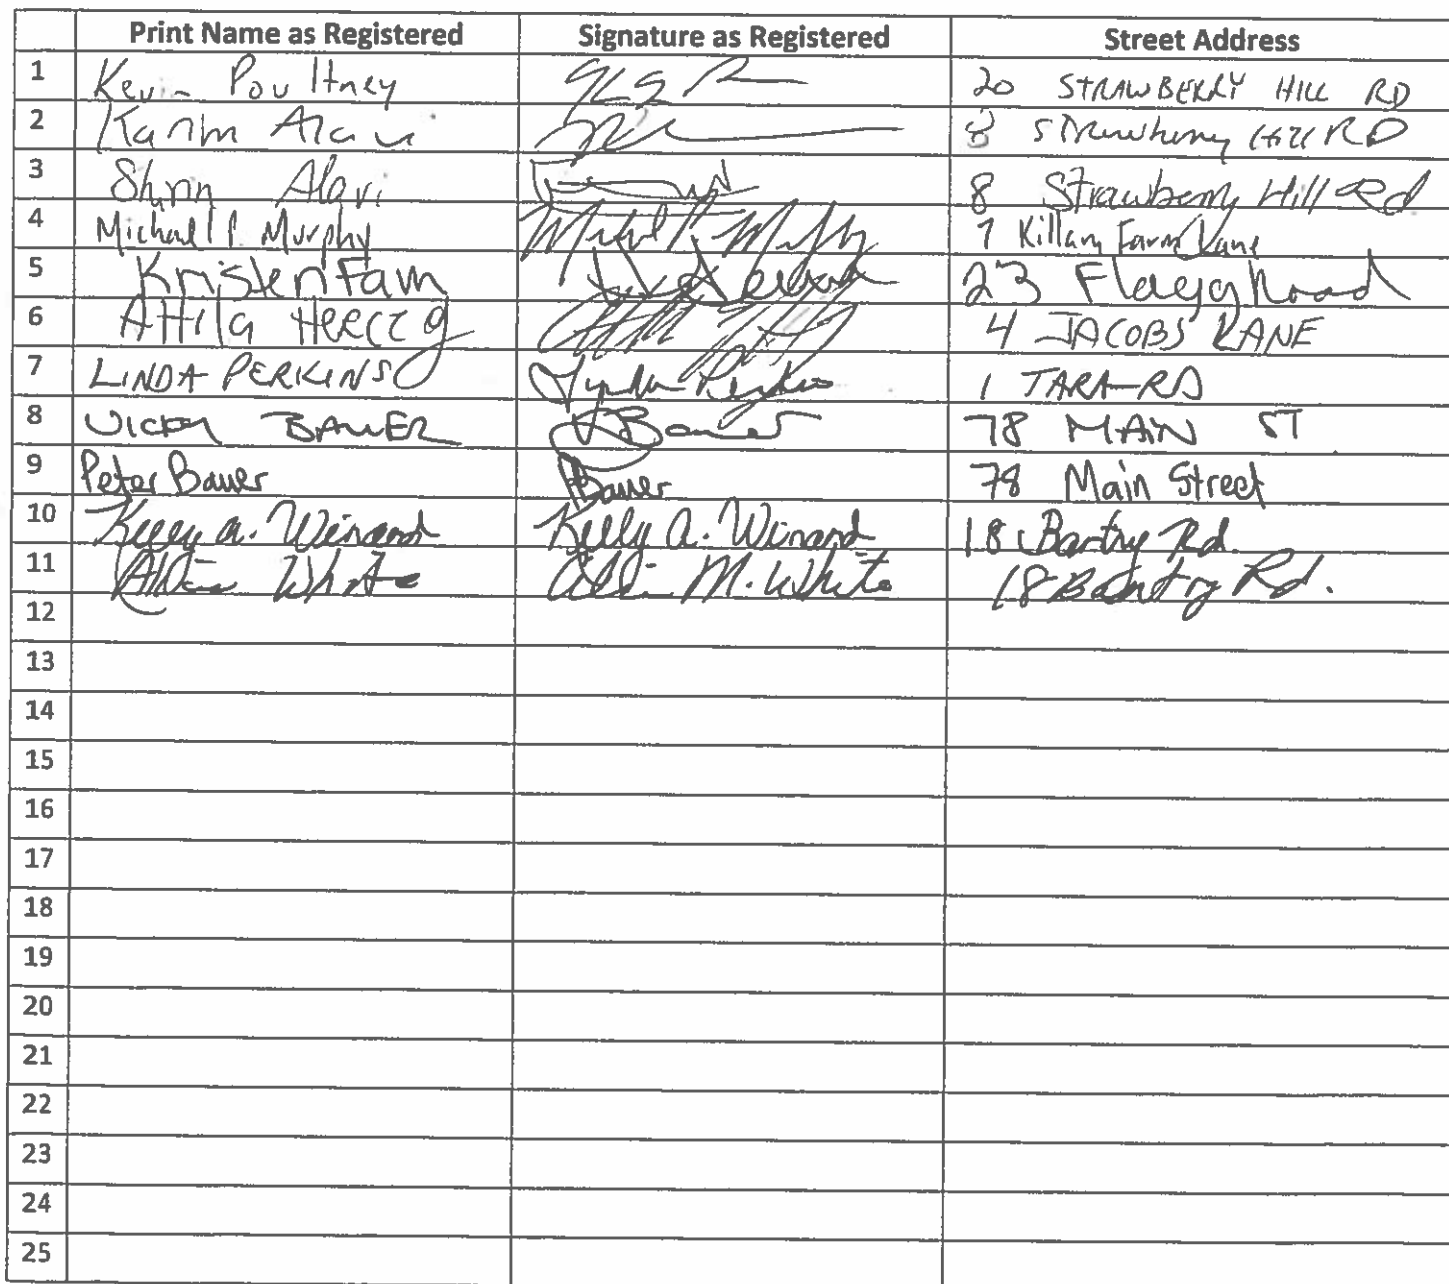 Print Name as Registered Signature as Registered Street Address
1 Kevin Poultney 20 STRAWBERRY HILL RD
2 Karim Alavi 8 Strawberry Hill RD
3 Shirin Alavi 8 Strawberry Hill Rd
4 Michael P. Murphy Michael P. Murphy 7 Killam Farm Lane
5 Kristen Fam 23 Flagg Road
6 Attila Herczeg 4 JACOBS LANE
7 LINDA PERKINS Lynda Perkins 1 TARA RD
8 VICKY BAUER Bauer 78 MAIN ST
9 Peter Bauer PBauer 78 Main Street
10 Kelly a. Winard Kelly a. Winard 18 Bantry Rd.
11 White M. White 18 Bantry Rd.
12
13
14
15
16
17
18
19
20
21
22
23
24
25